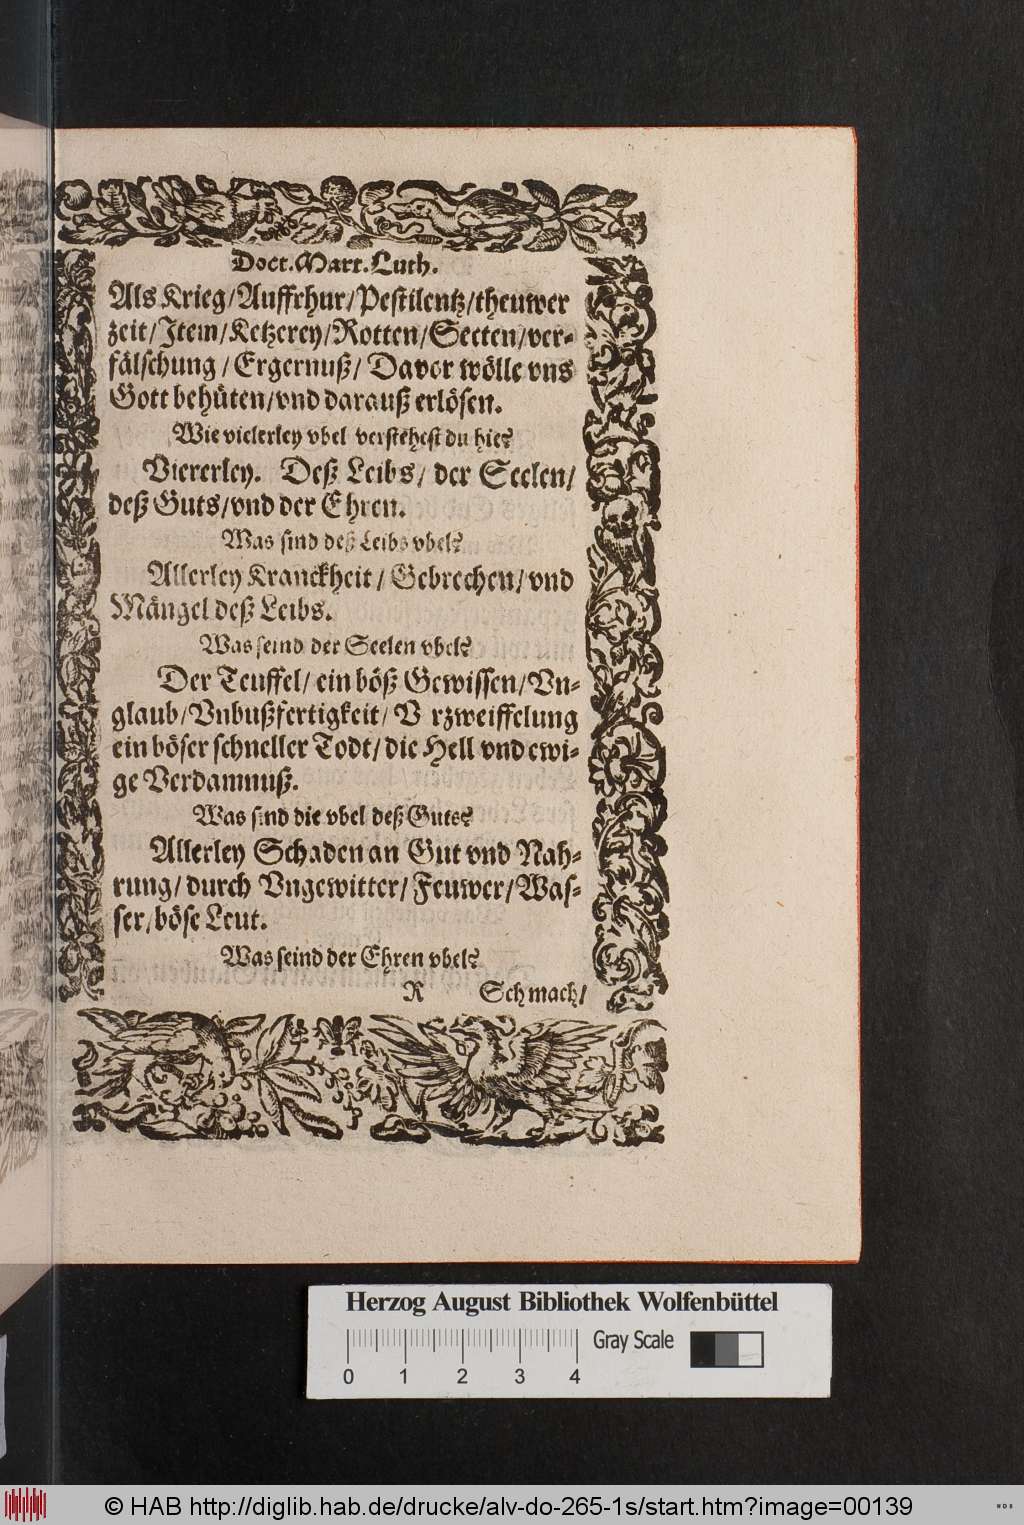 Doct. Mart. Luth.
Als Krieg/Auffrhur/Pestilentz/theuwer
zeit/Item/Ketzerey/Rotten/Secten/ver-
fälschung/Ergernuß/Davor wölle vns
Gott behüten/vnd darauß erlösen.
Wie vielerley vbel verstehest du hie?
Viererley. Deß Leibs/der Seelen/
deß Guts/vnd der Ehren.
Was sind deß Leibs vbel?
Allerley Kranckheit/Gebrechen/vnd
Mängel deß Leibs.
Was seind der Seelen vbel?
Der Teuffel/ein böß Gewissen/Vn-
glaub/Vnbußfertigkeit/V rzweiffelung
ein böser schneller Todt/die Hell vnd ewi-
ge Verdamnuß.
Was sind die vbel deß Guts?
Allerley Schaden an Gut vnd Nah-
rung/durch Vngewitter/Feuwer/Was-
ser/böse Leut.
Was seind der Ehren vbel?
R Schmach/
Herzog August Bibliothek Wolfenbüttel
Gray Scale
0 1 2 3 4
© HAB http://diglib.hab.de/drucke/alv-do-265-1s/start.htm?image=00139